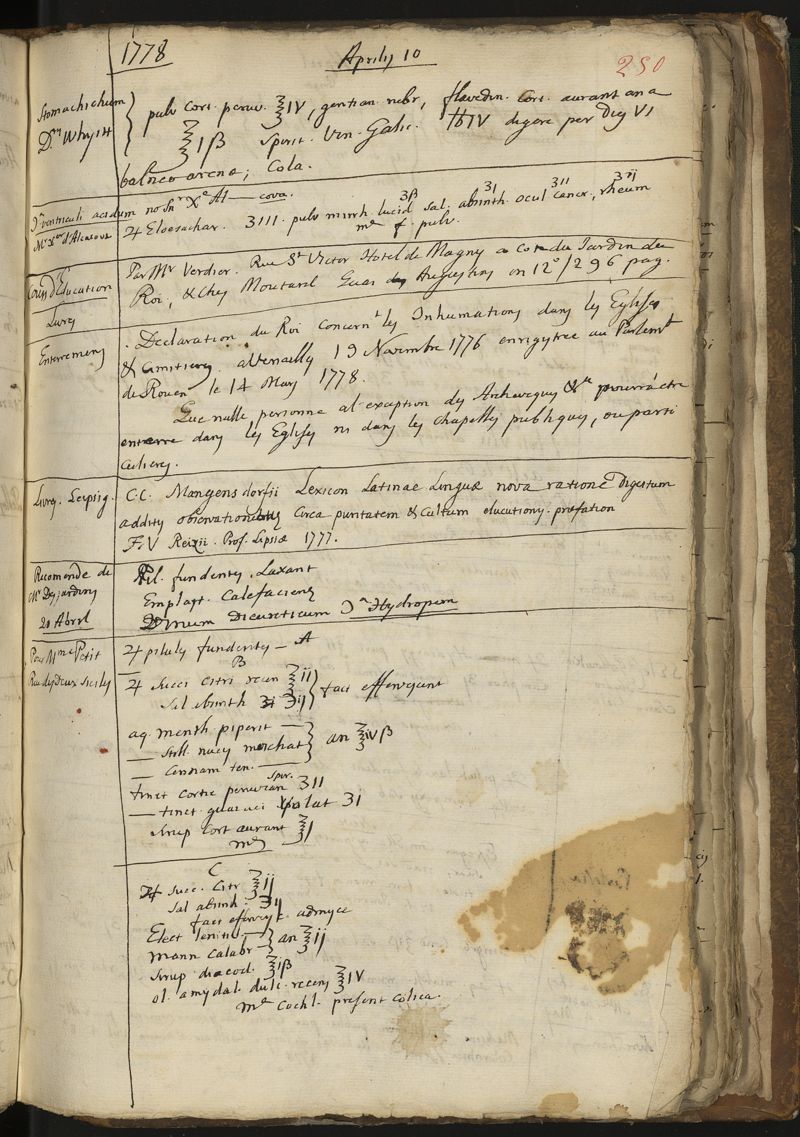 1778 Aprilis 10 250
Stomachichum
Dni Whrystt
pulv cort. peruv. ℥IV, gentian. rubr, flavedin. Cort. aurant ana
℥I ß Spirit. Vin. Galic. ℔IV digere per Dies VI
balneo arenæ; Cola.
ventriculi acidum
Mr d'Alcacova
♃ Eloesachar. ʒIII. pulv mirrh. lucid ʒß sal. absinth ʒI ocul cancr, ʒII rheum ʒij
me f. pulv.
Cours d'Education
Livres
Par Mr Verdier. Rue St Victor Hotel de Magny a Coté du Jardin du
Roi, & chez Moutard Quai des Augustins in 12° / 296 pag.
Enterremens
Declaration du Roi Concernt les Inhumations dans les Eglises
& Cimitieres. a Versailles 19 Novembre 1776 enrigytree au Parlemt
de Rouen le 14 Mars 1778.
Que nulle personne a l'exception des Archeveques &ce pourra être
enterré dans les Eglises ni dans les Chapelles publiques, ou parti
culieres.
Livres. Leipsig.
C.C. Mangensdorfii Lexicon Latinae Linguæ nova ratione digestum
additis observationibus circa puritatem & Cultum elocutionis. præfation
F. V Reizii. Prof. Lipsiæ 1777.
Recomende de
Mr Desjardins
20 Abril
Pil. fundentes. Laxant
Emplast. Calefaciens
Vinum Diureticum Hydropem
Pour Mme Petit
Rue des Deux Siciles
♃ pilules fundentes — A
B
♃ Succi Citri recen ℥ij
Sal absinth ʒij fact effervescent
aq. menth piperit —
— Still. nucis moschat
— Cinnam ten. —
an ℥iv ß
tinct cortic peruvian Spir. ʒII
— tinct guaiaci volat ʒi
Sirup Cort aurant ℥j
me
C
♃ Succ. Citr ℥ij
Sal absinth. ʒij
fact efferves c. admisce
Elect lenitiv —
mann calabr —
an ℥ij
Sirup diacod. ℥i ß
ol. amygdal. dulc. recens ℥IV
me Cochl. present colica.